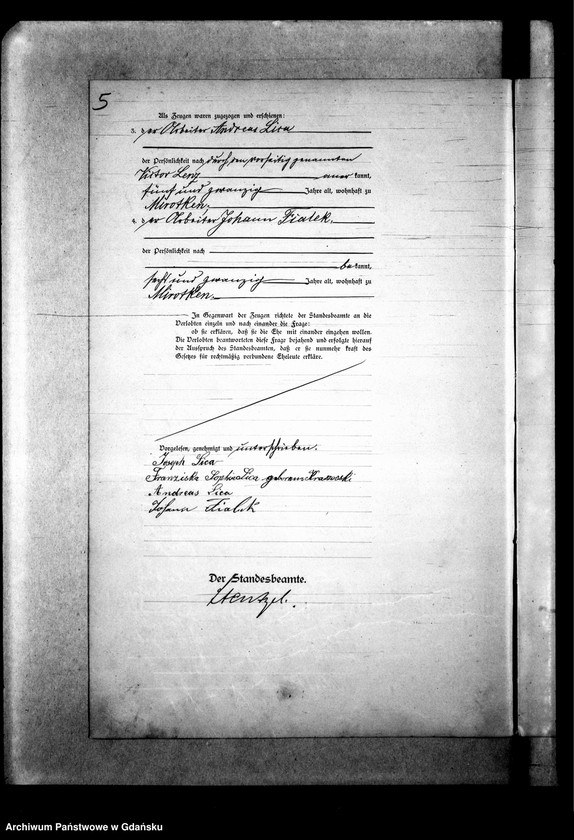 5
Als Zeugen waren zugezogen und erschienen:
3. der Arbeiter Andreas Lica
der Persönlichkeit nach durch den vorseitig genannten
Victor Lenz anerkannt,
fünf und zwanzig Jahre alt, wohnhaft zu
Mirotken.
4. der Arbeiter Johann Fialek,
der Persönlichkeit nach
bekannt,
sechs und zwanzig Jahre alt, wohnhaft zu
Mirotken.
In Gegenwart der Zeugen richtete der Standesbeamte an die
Verlobten einzeln und nach einander die Frage:
ob sie erklären, daß sie die Ehe mit einander eingehen wollen.
Die Verlobten beantworteten diese Frage bejahend und erfolgte hierauf
der Ausspruch des Standesbeamten, daß er sie nunmehr kraft des
Gesetzes für rechtmäßig verbundene Eheleute erkläre.
Vorgelesen, genehmigt und unterschrieben.
Joseph Lica
Franziska Sophia Lica geborene
Andreas Lica
Johann Fialek
Der Standesbeamte.
Stentzel.
Archiwum Państwowe w Gdańsku